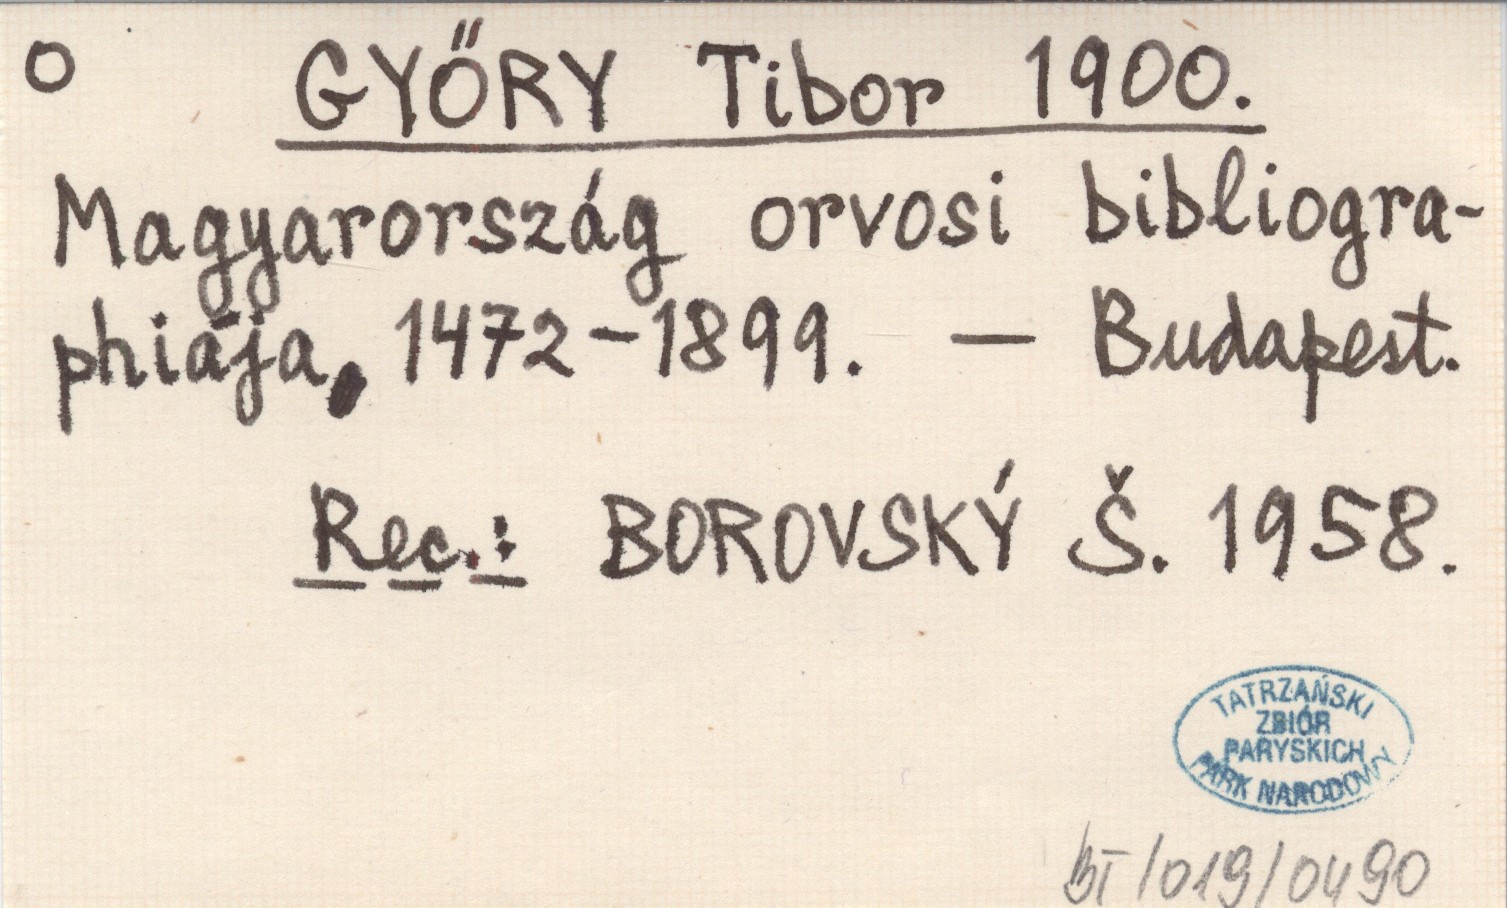 O GYŐRY Tibor 1900.
Magyarország orvosi bibliogra-
phiája, 1472-1899. — Budapest.
Rec.: BOROVSKÝ Š. 1958.
TATRZAŃSKI
ZBIÓR
PARYSKICH
PARK NARODOWY
BT/019/0490